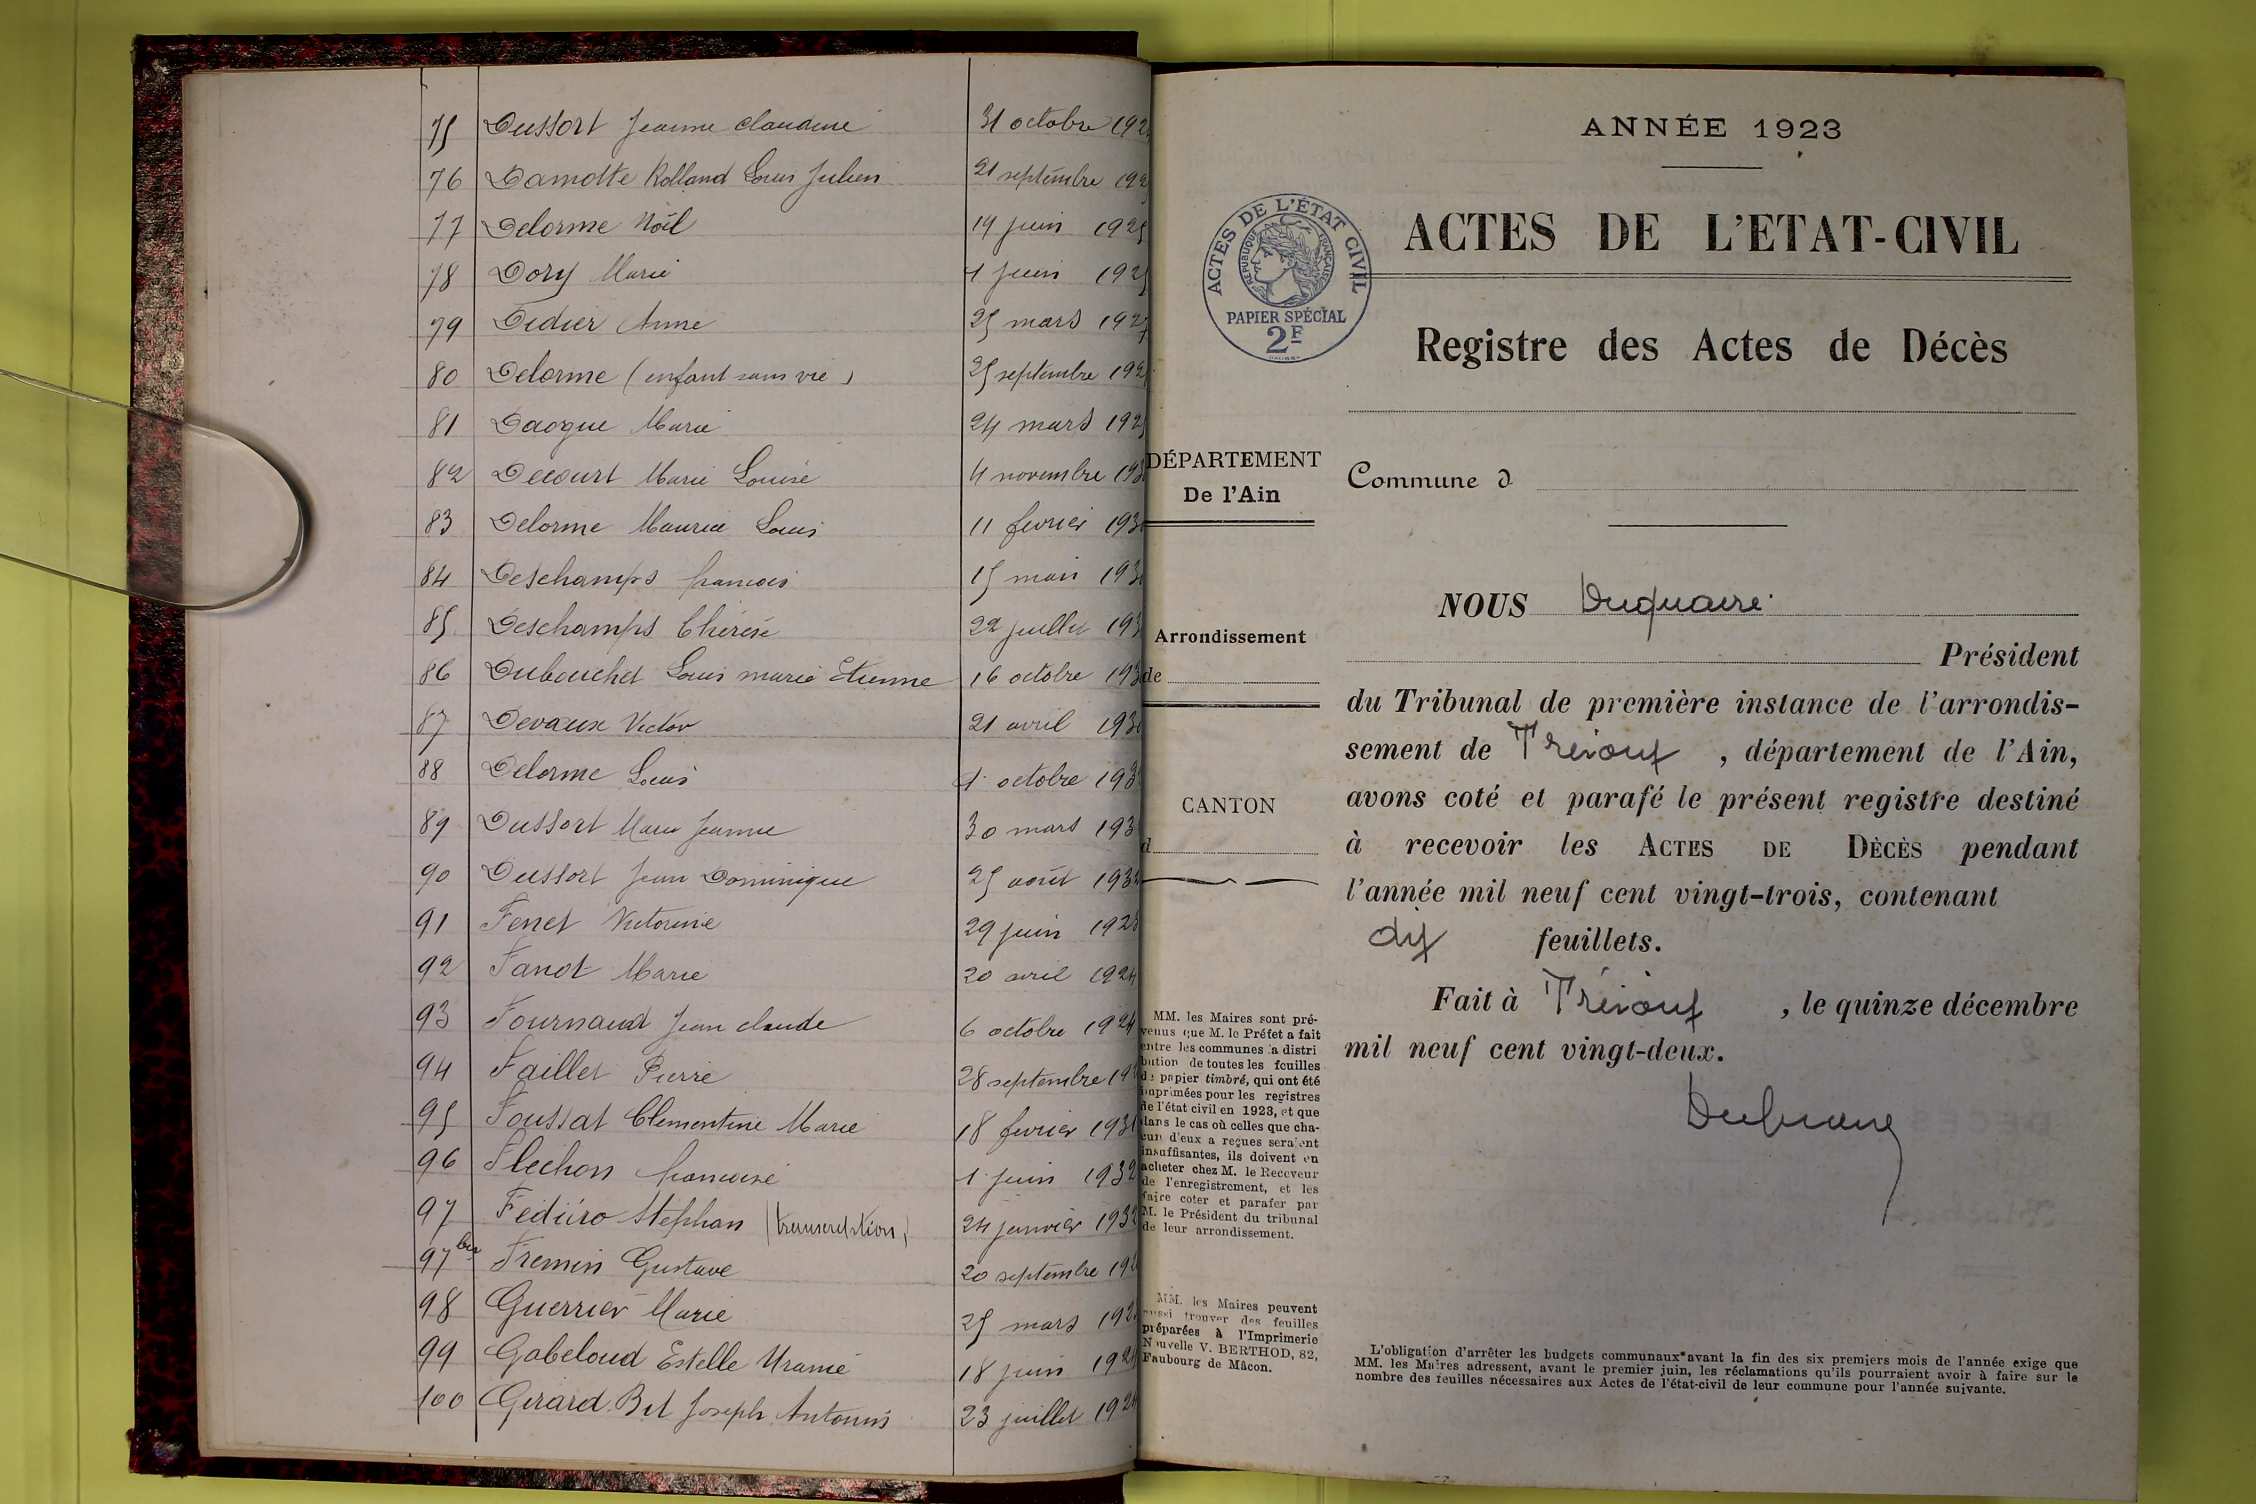 75 Dussort Jeanne Claudine 31 octobre
76 Damotte Rolland Louis Julien 21 septembre
77 Delorme Noël 14 juin 1925
78 Dory Marie 1 juin
79 Didier Anne 25 mars
80 Delorme (enfant sans vie) 25 septembre
81 Marie 24 mars
82 Decourt Marie Louise 4 novembre
83 Delorme Maurice Louis 11 fevrier
84 Deschamps francois 15 mars
85 Deschamps Thérèse 22 juillet
86 Dubouchet Louis marie Etienne 16 octobre
87 Devaux Victor 21 avril
88 Delorme Louis 1 octobre
89 Dussort Marie Jeanne 30 mars
90 Dussort Jean Dominique 25 août
91 Fenet Victorine 29 juin 1923
92 Fanot Marie 20 avril 1924
93 Fournaud Jean claude 6 octobre 1924
94 Faillet Pierre 28 septembre
95 Foussat Clementine Marie 18 fevrier 1931
96 Flechon francoise 1 juin 1932
97 Stephan (transcription) 24 janvier 1933
97 bis Fremin Gustave 20 septembre
98 Guerrier Marie 25 mars
99 Gabeloud Estelle Uranie 18 juin
100 Girard Bel Joseph Antonin 23 juillet 1924
ANNÉE 1923
ACTES DE L'ÉTAT CIVIL
RÉPUBLIQUE FRANÇAISE
PAPIER SPÉCIAL
2F
ACTES DE L'ETAT-CIVIL
Registre des Actes de Décès
DÉPARTEMENT
De l'Ain
Commune d
Arrondissement
de
CANTON
d
NOUS Duquaire
Président
du Tribunal de première instance de l'arrondis-
sement de Trévoux, département de l'Ain,
avons coté et parafé le présent registre destiné
à recevoir les ACTES DE DÉCÈS pendant
l'année mil neuf cent vingt-trois, contenant
dix feuillets.
Fait à Trévoux, le quinze décembre
mil neuf cent vingt-deux.
Duquaire
MM. les Maires sont pré-
venus que M. le Préfet a fait
entre les communes la distri
bution de toutes les feuilles
de papier timbré, qui ont été
imprimées pour les registres
de l'état civil en 1923, et que
dans le cas où celles que cha-
cun d'eux a reçues seraient
insuffisantes, ils doivent en
acheter chez M. le Receveur
de l'enregistrement, et les
faire coter et parafer par
M. le Président du tribunal
de leur arrondissement.
MM. les Maires peuvent
aussi trouver des feuilles
préparées à l'Imprimerie
Nouvelle V. BERTHOD, 82,
Faubourg de Mâcon.
L'obligation d'arrêter les budgets communaux avant la fin des six premiers mois de l'année exige que
MM. les Maires adressent, avant le premier juin, les réclamations qu'ils pourraient avoir à faire sur le
nombre des feuilles nécessaires aux Actes de l'état-civil de leur commune pour l'année suivante.